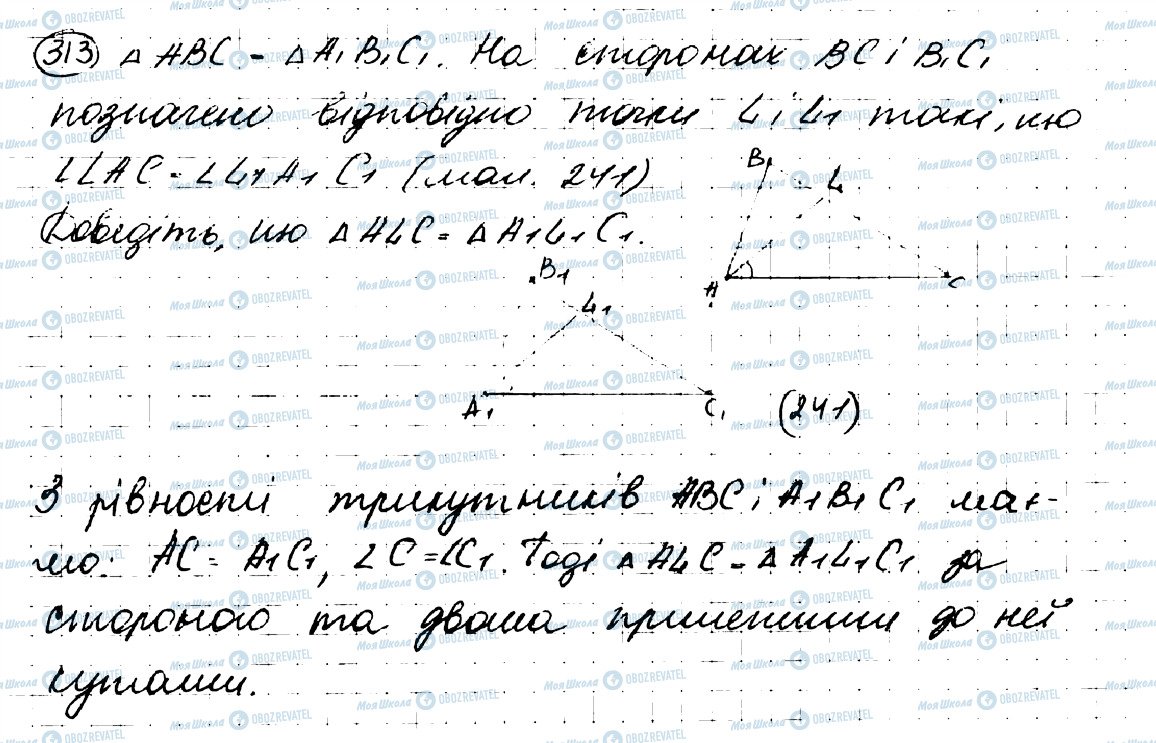 313 △ ABC = △ A₁B₁C₁. На сторонах BC і B₁C₁
позначено відповідно точки L і L₁ такі, що
∠LAC = ∠L₁A₁C₁ (мал. 241)
Доведіть, що △ ALC = △ A₁L₁C₁.
B L
A C
B₁
L₁
A₁ C₁ (241)
З рівності трикутників ABC і A₁B₁C₁ має-
мо: AC = A₁C₁, ∠C = ∠C₁. Тоді △ ALC = △ A₁L₁C₁ за
стороною та двома прилеглими до неї
кутами.
Моя Школа OBOZREVATEL